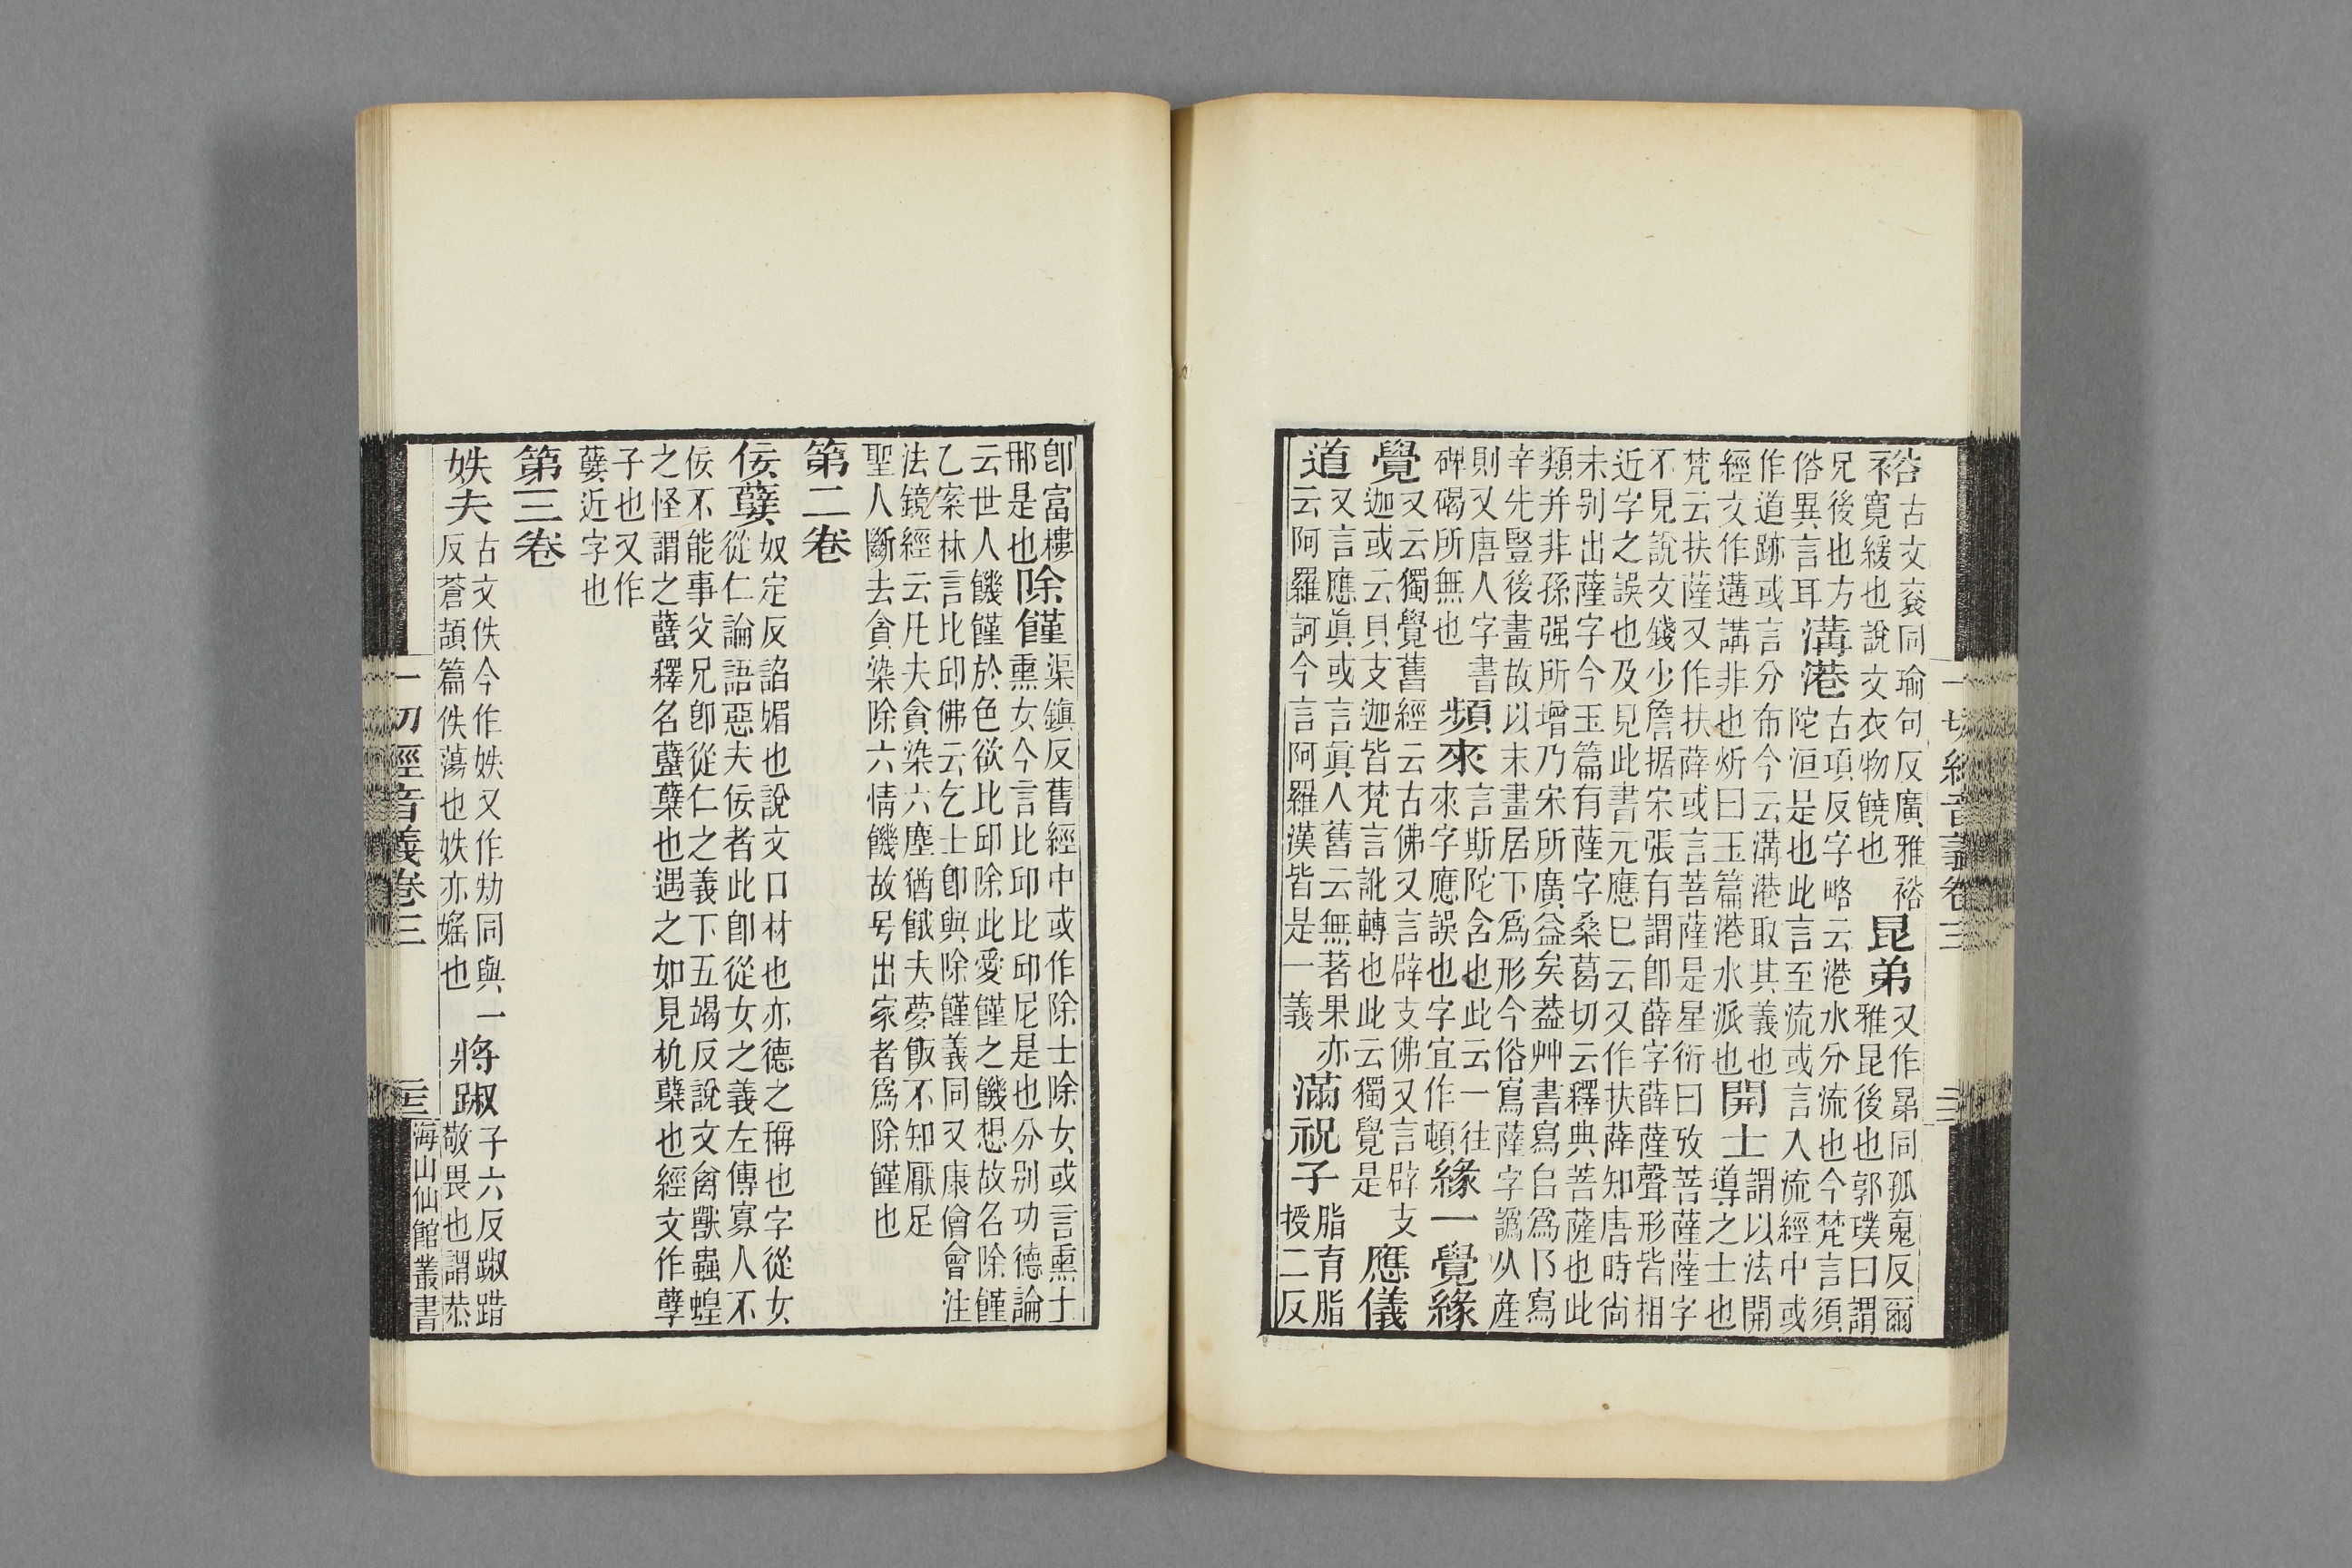 一切經音義卷三 三
裕古文㒑同瑜句反廣雅裕
寬緩也說文衣物饒也
昆弟又作晜同孤䰟反爾
雅昆後也郭璞曰謂
兄後也方
俗異言耳
溝港古項反字略云港水分流也今梵言須
陀洹是也此言至流或言入流經中或
作道跡或言分布今云溝港取其義也
經文作遘講非也炘曰玉篇港水派也
開士謂以法開
導之士也
梵云扶薩又作扶薛或言菩薩是星衍曰攷菩薩薩字
不見說文錢少詹据宋張有謂卽薛字薛薩聲形皆相
近字之誤也及見此書元應巳云又作扶薛知唐時尙
未别出薩字今玉篇有薩字桑葛切云釋典菩薩也此
類并非孫强所增乃宋所廣益矣葢艸書寫𠂤爲阝寫
辛先豎後畫故以末畫居下爲形今俗寫薩字譌从產
則又唐人字書
碑碣所無也
頻來言斯陀含也此云一往
來字應誤也字宜作頓
緣一覺緣
覺又云獨覺舊經云古佛又言辟支佛又言辟支
迦或云貝支迦皆梵言訛轉也此云獨覺是
應儀
道又言應眞或言眞人舊云無著果亦
云阿羅訶今言阿羅漢皆是一義
滿祝子脂育脂
授二反
卽富樓
那是也
除饉渠鎮反舊經中或作除士除女或言熏士
熏女今言比邱比邱尼是也分别功德論
云世人饑饉於色欲比邱除此愛饉之饑想故名除饉
乙案秝言比邱佛云乞士卽與除饉義同又康僧會注
法鏡經云凡夫貪染六塵猶餓夫夢飯不知厭足
聖人斷去貪染除六情饑故号出家者爲除饉也
第二卷
佞㜸奴定反諂媚也說文口材也亦德之稱也字從女
從仁論語惡夫佞者此卽從女之義左傳寡人不
佞不能事父兄卽從仁之義下五竭反說文禽獸蟲蝗
之怪謂之蠥釋名蠥櫱也遇之如見杌櫱也經文作孽
子也又作
㜸近字也
第三卷
妷夫古文佚今作妷又作劮同與一
反蒼頡篇佚蕩也妷亦婬也
將踧子六反踧踖
敬畏也謂恭
一切經音義卷三 海山仙館叢書